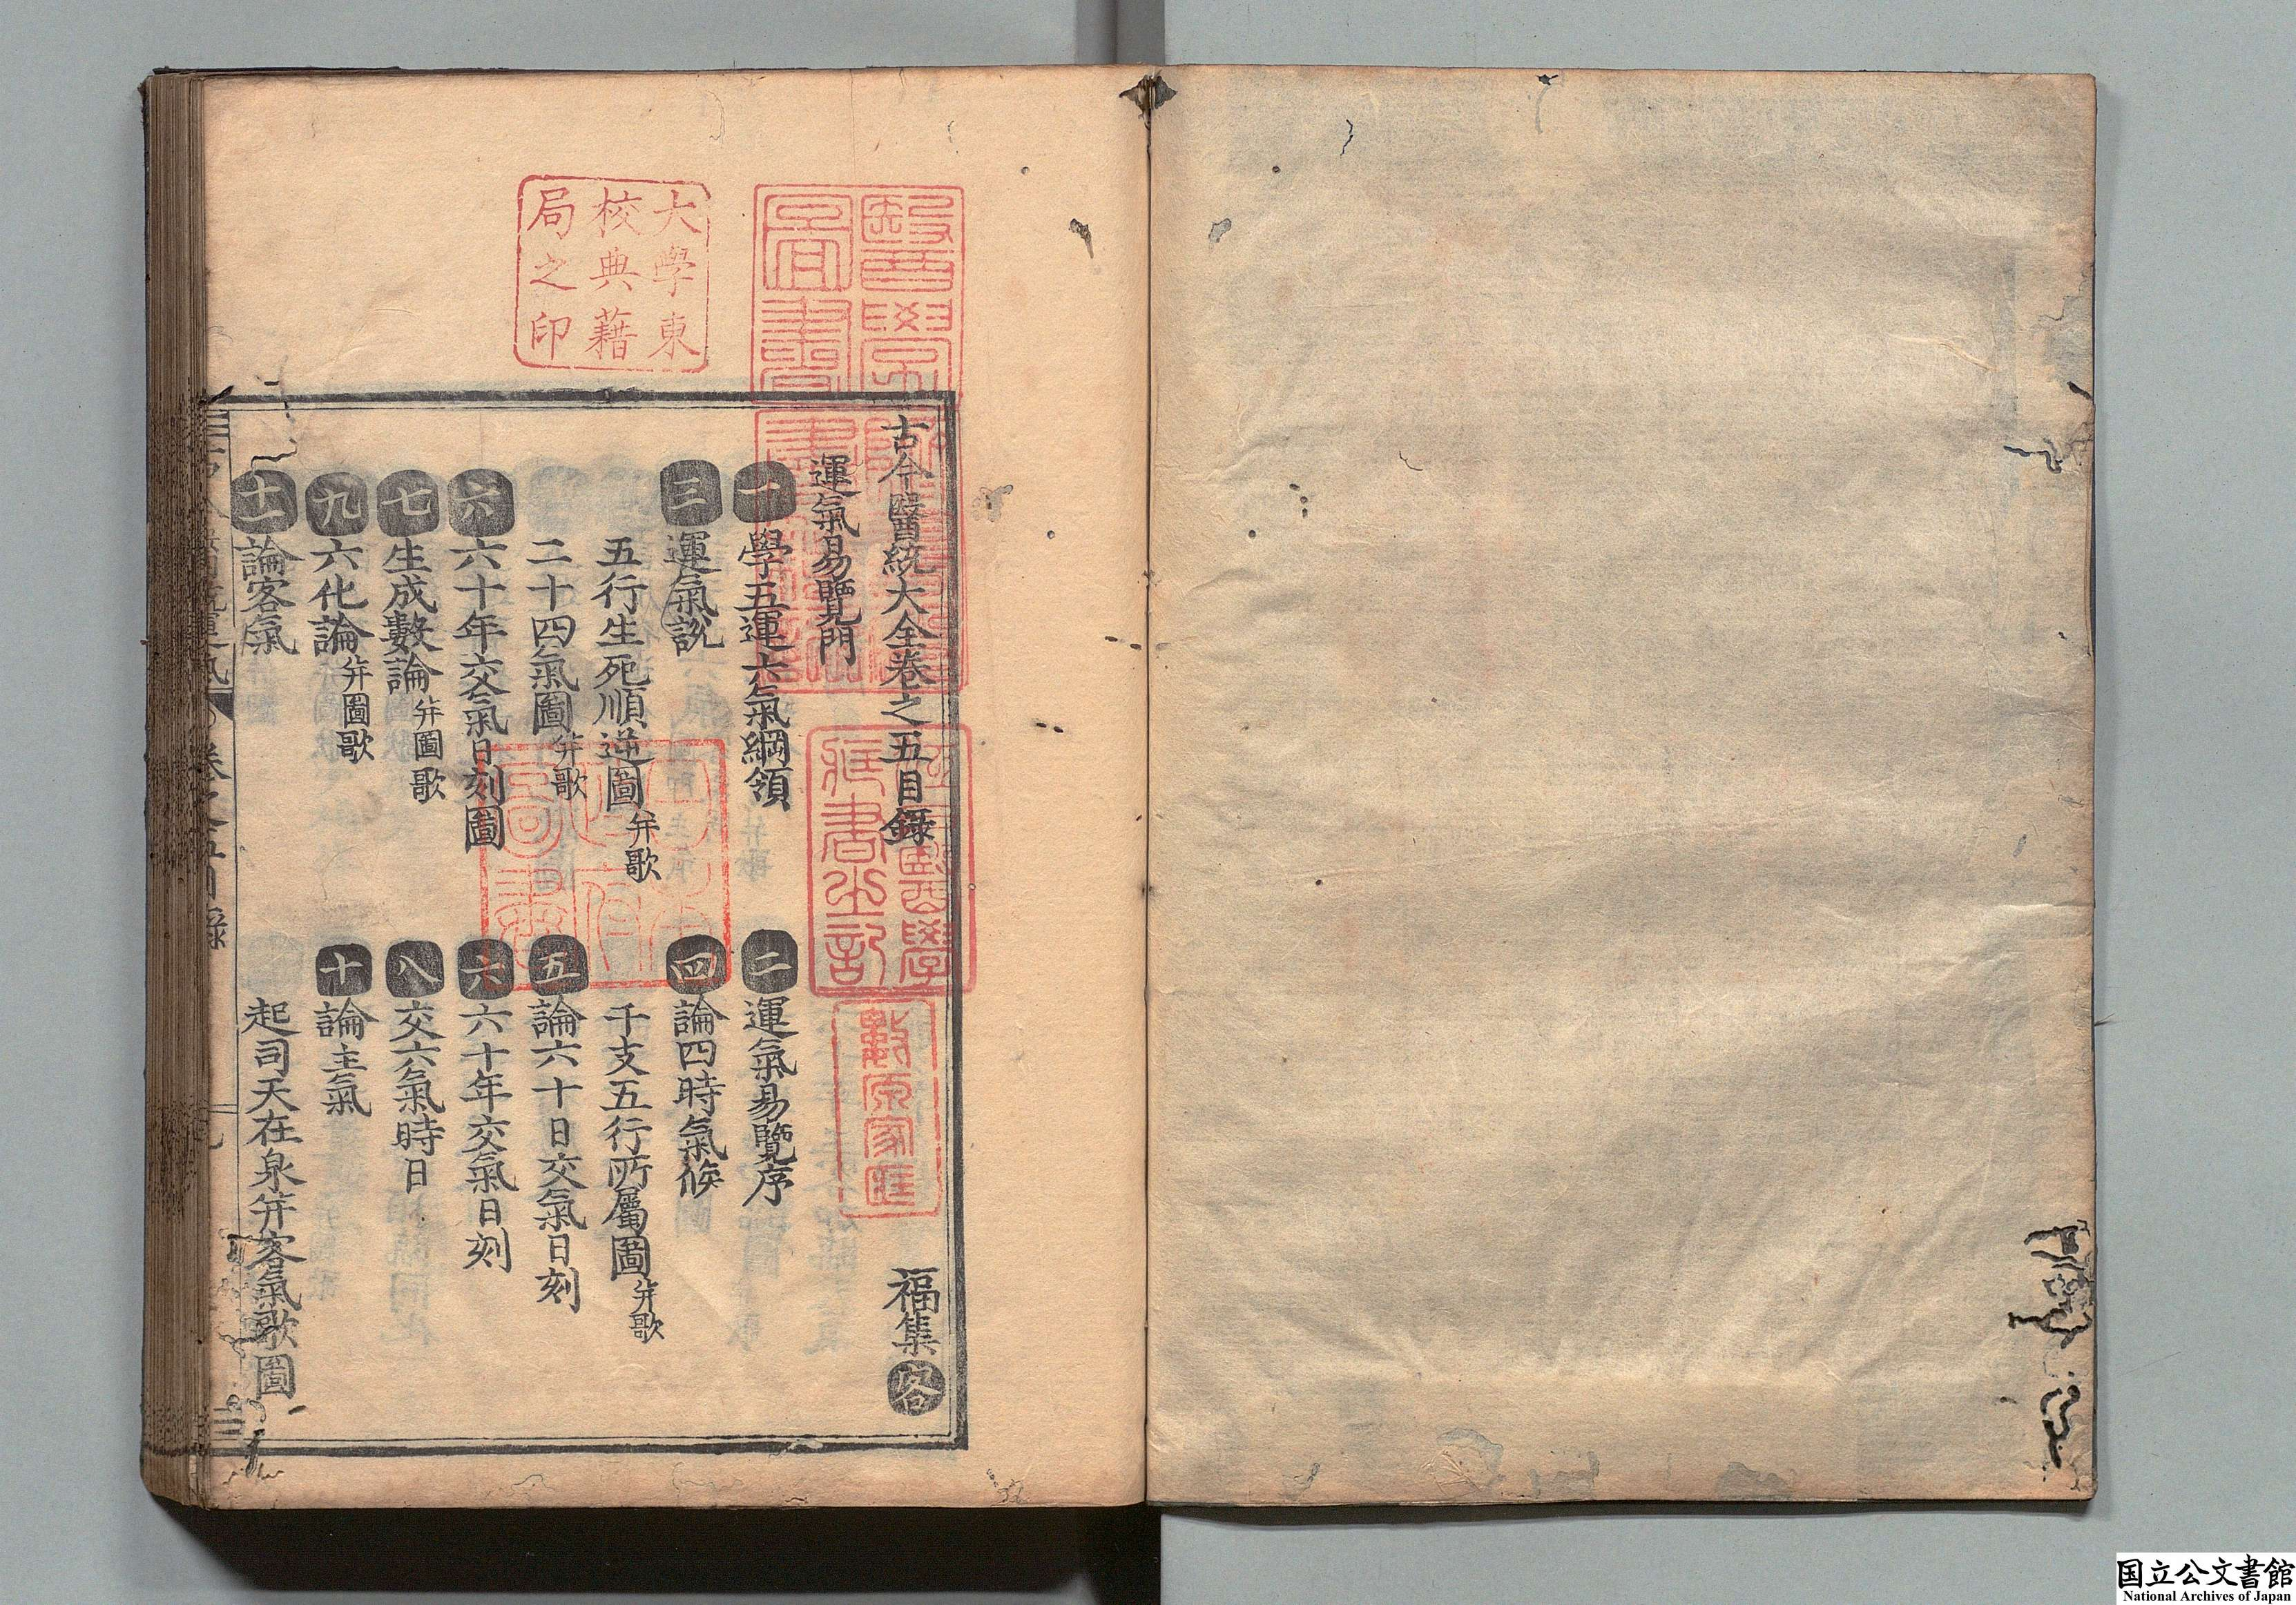 古今醫統大全卷之五目錄 福集 各
運氣易覽門
一 學五運六氣綱領 二 運氣易覽序
三 運氣說 四 論四時氣候
五行生死順逆圖 并歌 干支五行所屬圖 并歌
二十四氣圖 并歌 五 論六十日交氣日刻
六 六十年交氣日刻圖 六 六十年交氣日刻
七 生成數論 并圖歌 八 交六氣時日
九 六化論 并圖歌 十 論主氣
十一 論客氣 起司天在泉并客氣歌圖
卷之五目錄
大學東
校典藉
局之印
醫學
圖書
躋壽殿書籍記
江戶醫學
藏書之記
日本
政府
圖書
国立公文書館
National Archives of Japan